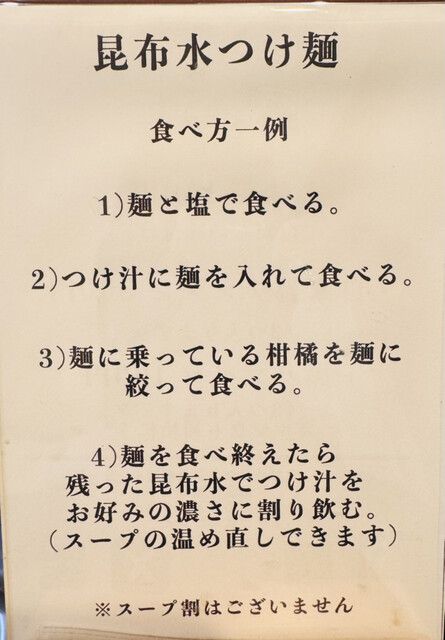 昆布水つけ麺
食べ方一例
1)麺と塩で食べる。
2)つけ汁に麺を入れて食べる。
3)麺に乗っている柑橘を麺に
絞って食べる。
4)麺を食べ終えたら
残った昆布水でつけ汁を
お好みの濃さに割り飲む。
(スープの温め直しできます)
※スープ割はございません